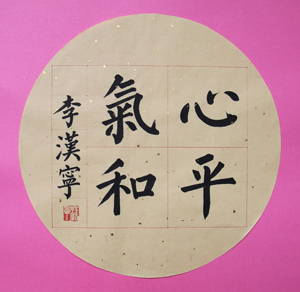 心平
氣和
李漢寧